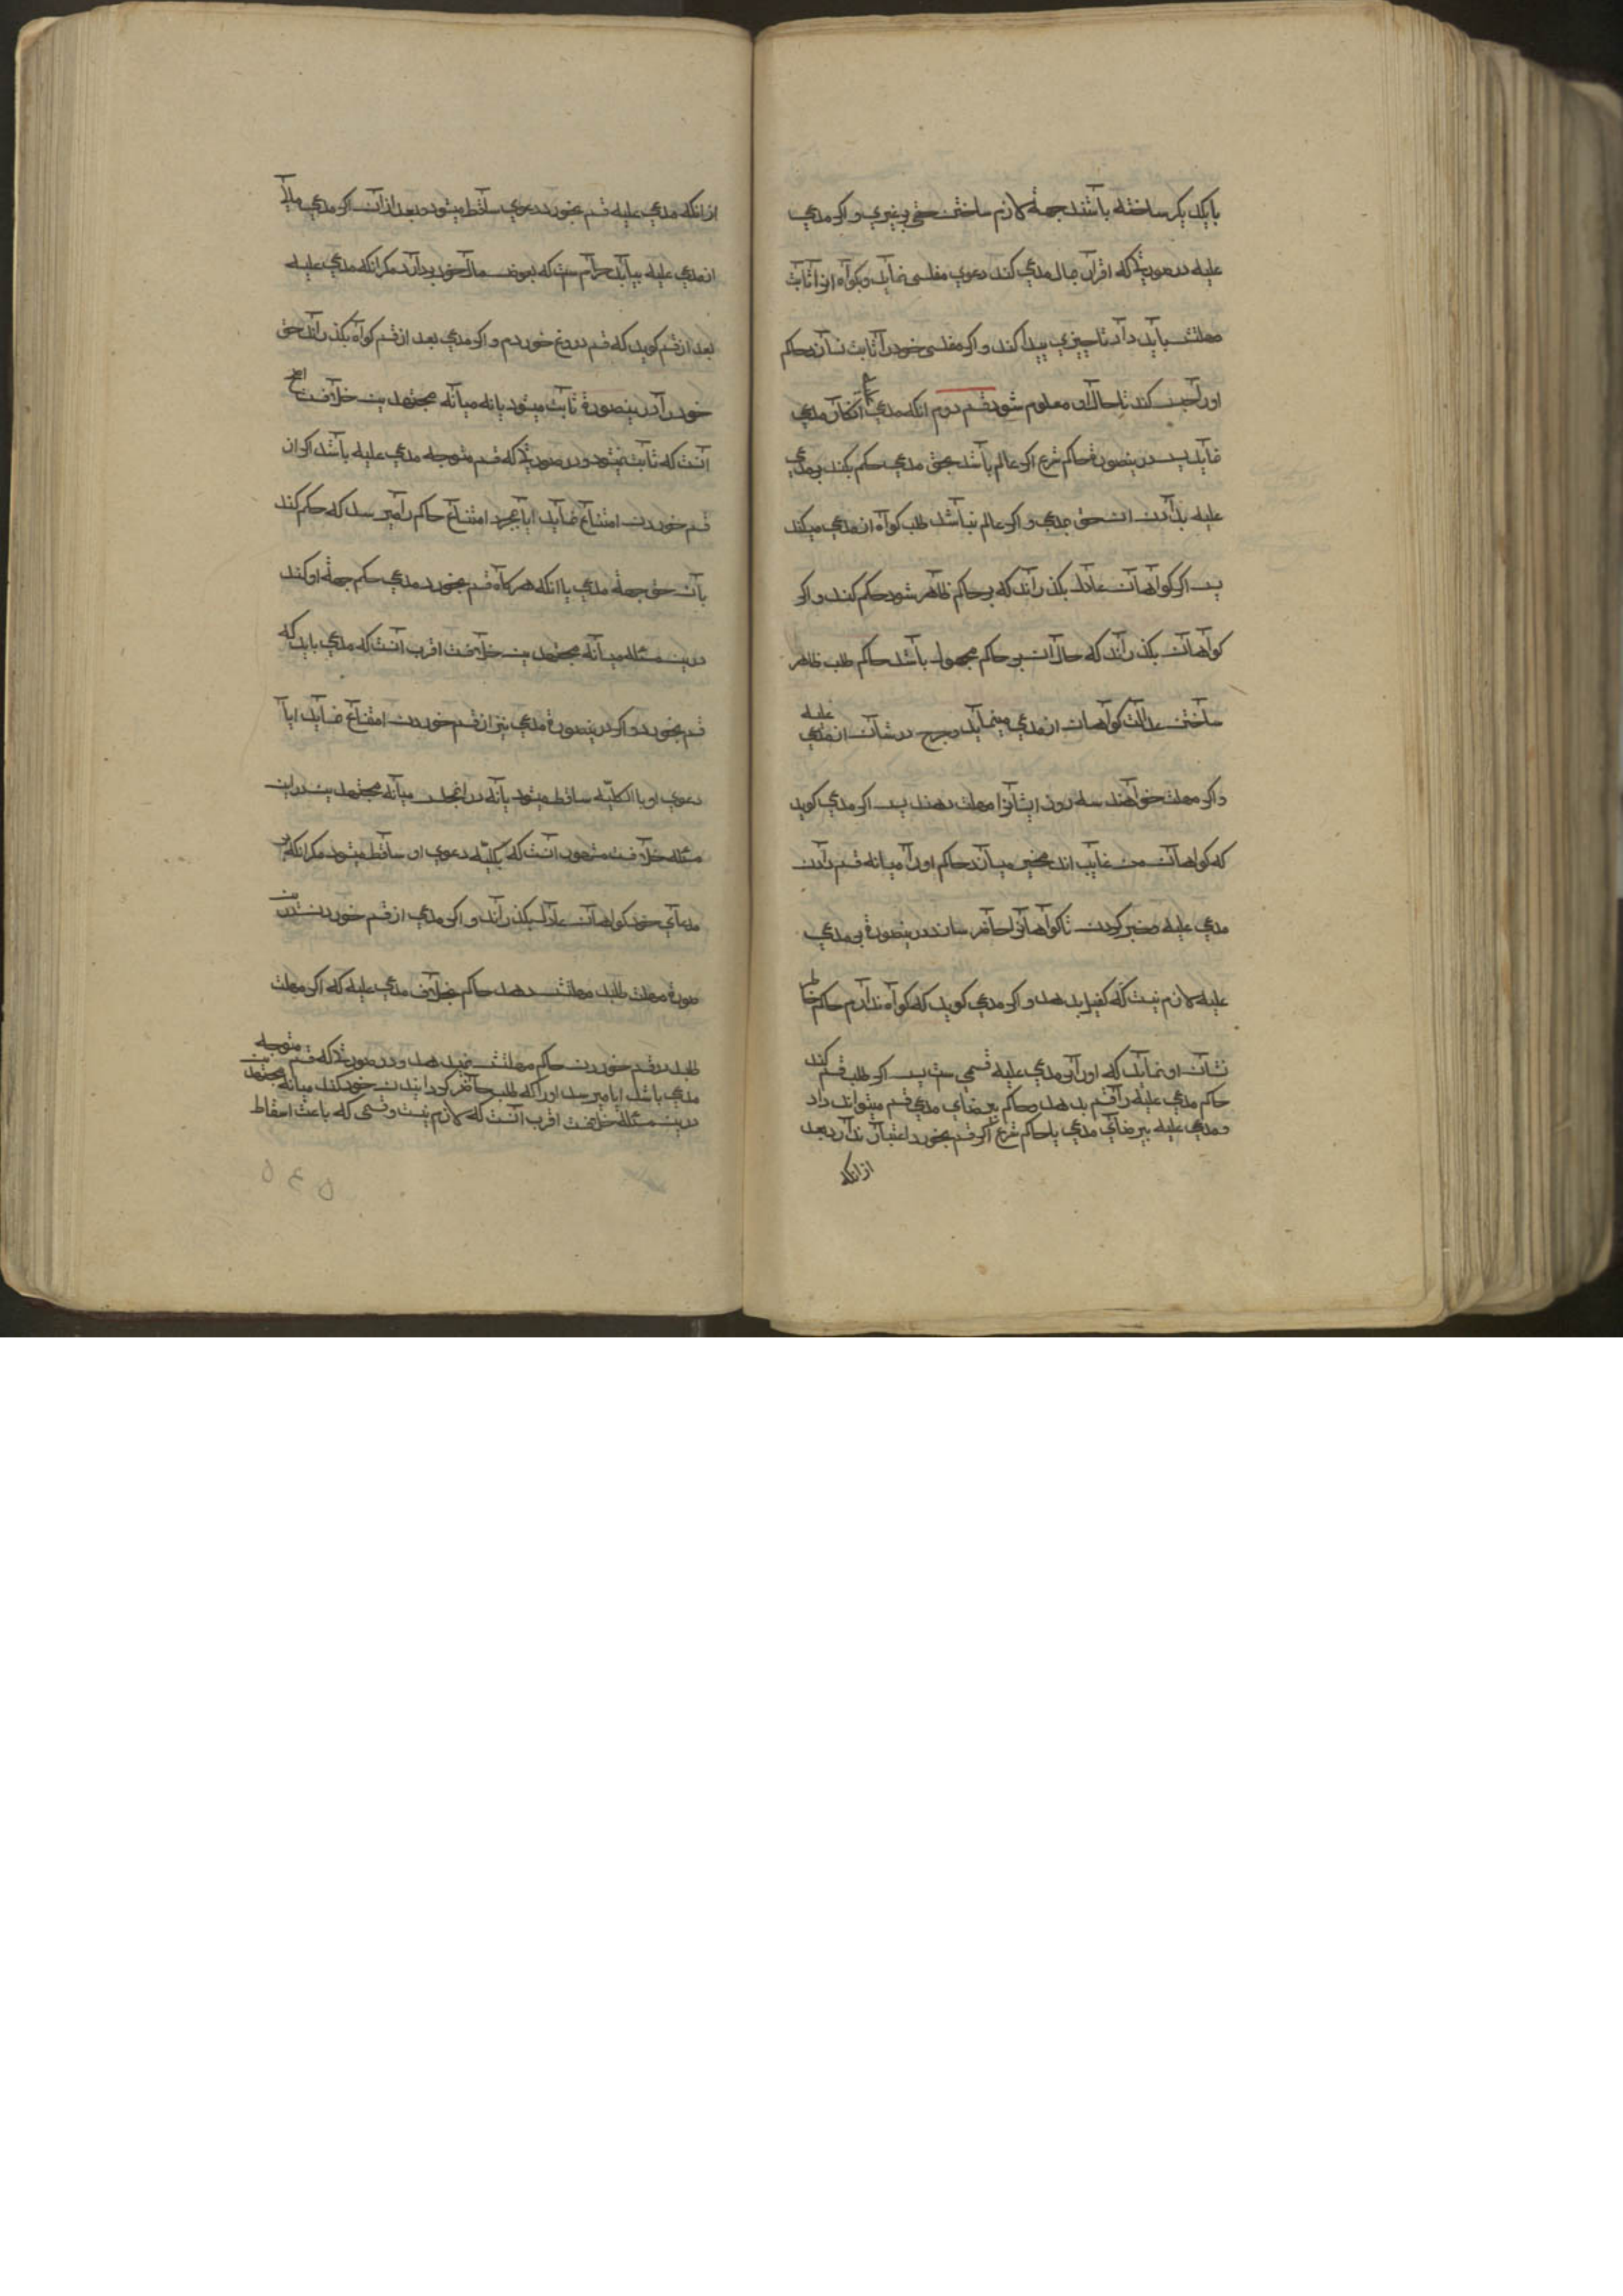 بایکدیکر ساخته باشند جهة لازم ساختن حق بر غیری و اکر مدعی
علیه در صورتیکه اقرار بمال مدعی کند دعوی مفلسی نماید و کواه از اثابت
مهلتش باید داد تا چیزی پیدا کند و اکر مفلسی خود را ثابت نسازد حاکم
اورا حبس کند تا حال او معلوم شود قسم دوم انکه مدعی علیه انکار مدعی
نماید پس درینصورة حاکم شرع اکر عالم باشد بحق مدعی حکم بکند بر مدعی
علیه بدادن ان حق بمدعی و اکر عالم نباشد طلب کواه از مدعی میکند
پس اکر کواهان عادل بکذراند که بر حاکم ظاهر شود حکم کند و اکر
کواهان بکذراند که حال ان بر حاکم مجهول باشد حاکم طلب ظاهر
ساختن عدالت کواهان از مدعی مینماید و جرح در شان از مدعی علیه
و اکر مهلت خواهند سه روز ایشانرا مهلت دهند پس اکر مدعی کوید
که کواهان من غایب اند مخیر میسازد حاکم اورا میانه قسم دادن
مدعی علیه و صبر کردن تا کواهانرا حاضر سازد درینصورة بر مدعی
علیه لازم نیست که کفیل بدهد و اکر مدعی کوید که کواه ندارم حاکم خاطر
نشان او نماید که اورا بر مدعی علیه قسمی هست پس اکر طلب قسم کند
حاکم مدعی علیه را قسم بدهد و حاکم بیرضای مدعی قسم میتواند داد
و مدعی علیه بیرضای مدعی یا حاکم شرع اکر قسم بخورد اعتبار ندارد و بعد
ازانکه
ازانکه مدعی علیه قسم بخورد دعوی ساقط میشود و بعد ازان اکر مدعی مالی
از مدعی علیه بیابد حرامست که بعوض مال خود بردارد مکر انکه مدعی علیه
بعد از قسم کوید که قسم دروغ خوردم و اکر مدعی بعد از قسم کواه بکذراند حق
خود را درینصورة ثابت میشود یا نه میانه مجتهدین خلافست اصح
انست که ثابت نمیشود و در صورتیکه قسم متوجه مدعی علیه باشد اکر از
قسم خوردن امتناع نماید ایا بمجرد امتناع حاکم را میرسد که حکم کند
بان حق جهة مدعی یا انکه هرکاه قسم بخورد مدعی حکم جهة او کند
درین مسئله میانه مجتهدین خلافست اقرب انست که مدعی باید که
قسم بخورد و اکر درینصورة مدعی نیز از قسم خوردن امتناع نماید ایا
دعوی او بالکلیه ساقط میشود یا نه در انمجلس میانه مجتهدین دراین
مسئله خلافست مشهور انست که بکلیه دعوی او ساقط میشود مکر انکه بر
مدعای خود کواهان عادل بکذراند و اکر مدعی از قسم خوردن درین
صورة مهلت طلبد مهلتش دهد حاکم بخلاف مدعی علیه که اکر مهلت
طلبد در قسم خوردن حاکم مهلتش نمیدهد و در صورتیکه قسم متوجه
مدعی باشد ایا میرسد اورا که طلب حاضر کردانیدن خود کند میانه مجتهدین
درین مسئله خلافست اقرب انست که لازم نیست و قسمی که باعث اسقاط